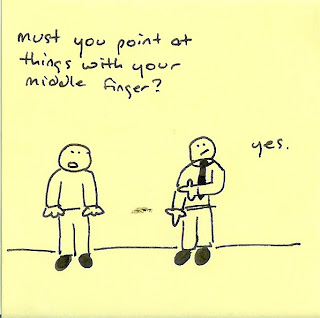 must you point at
things with your
middle finger?
yes.